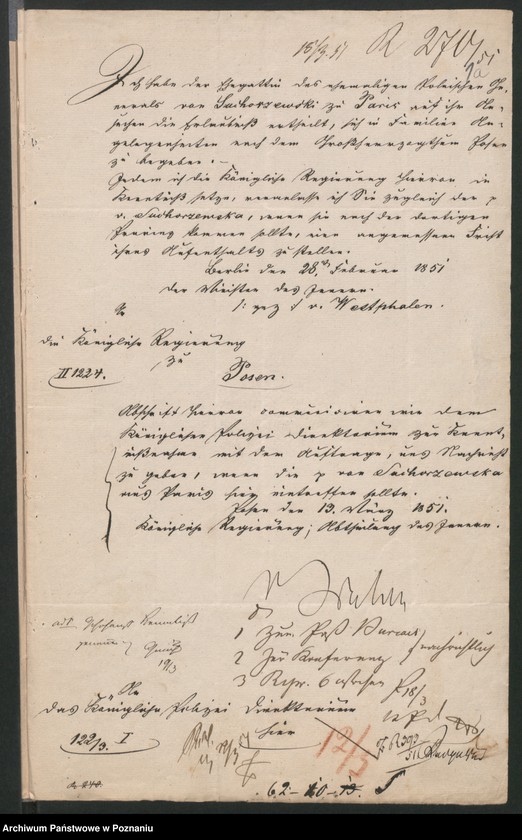 15/3.51 R 270/51
1a
Ich habe der Ehegattin des ehemaligen Polnischen Ge-
nerals von Suchorzewski zu Paris auf ihr An-
suchen die Erlaubniß ertheilt, sich in Familien An-
gelegenheiten nach dem Großherzogthum Posen
zu begeben. –
Indem ich die Königliche Regierung hiervon in
Kenntniß setze, veranlasse ich Sie zugleich der p
v. Suchorzewska, wenn sie nach der dortigen
Provinz kommen sollte, eine angemessene Frist
ihres Aufenthalts zu stellen.
Berlin den 28ten Februar 1851
Der Minister des Innern.
gez v. Westphalen.
An
die Königliche Regierung
zu
II 1224. Posen.
Abschrift hiervon communiciren wir dem
Königlichen Polizei Direktorium zur Kennt-
nißnahme mit dem Auftrage, uns Nachricht
zu geben, wenn die p von Suchorzewska
aus Paris hier eintreffen sollte.
Posen den 13. März 1851.
Königliche Regierung; Abtheilung des Innern.
1 Zum Paß Bureau
2 Zur nachrichtlich
3 Repr. 6 Wochen
18/3
19/3
An
das Königliche Polizei Direktorium
hier
122/3. I
12/3
62-10-13.
Archiwum Państwowe w Poznaniu